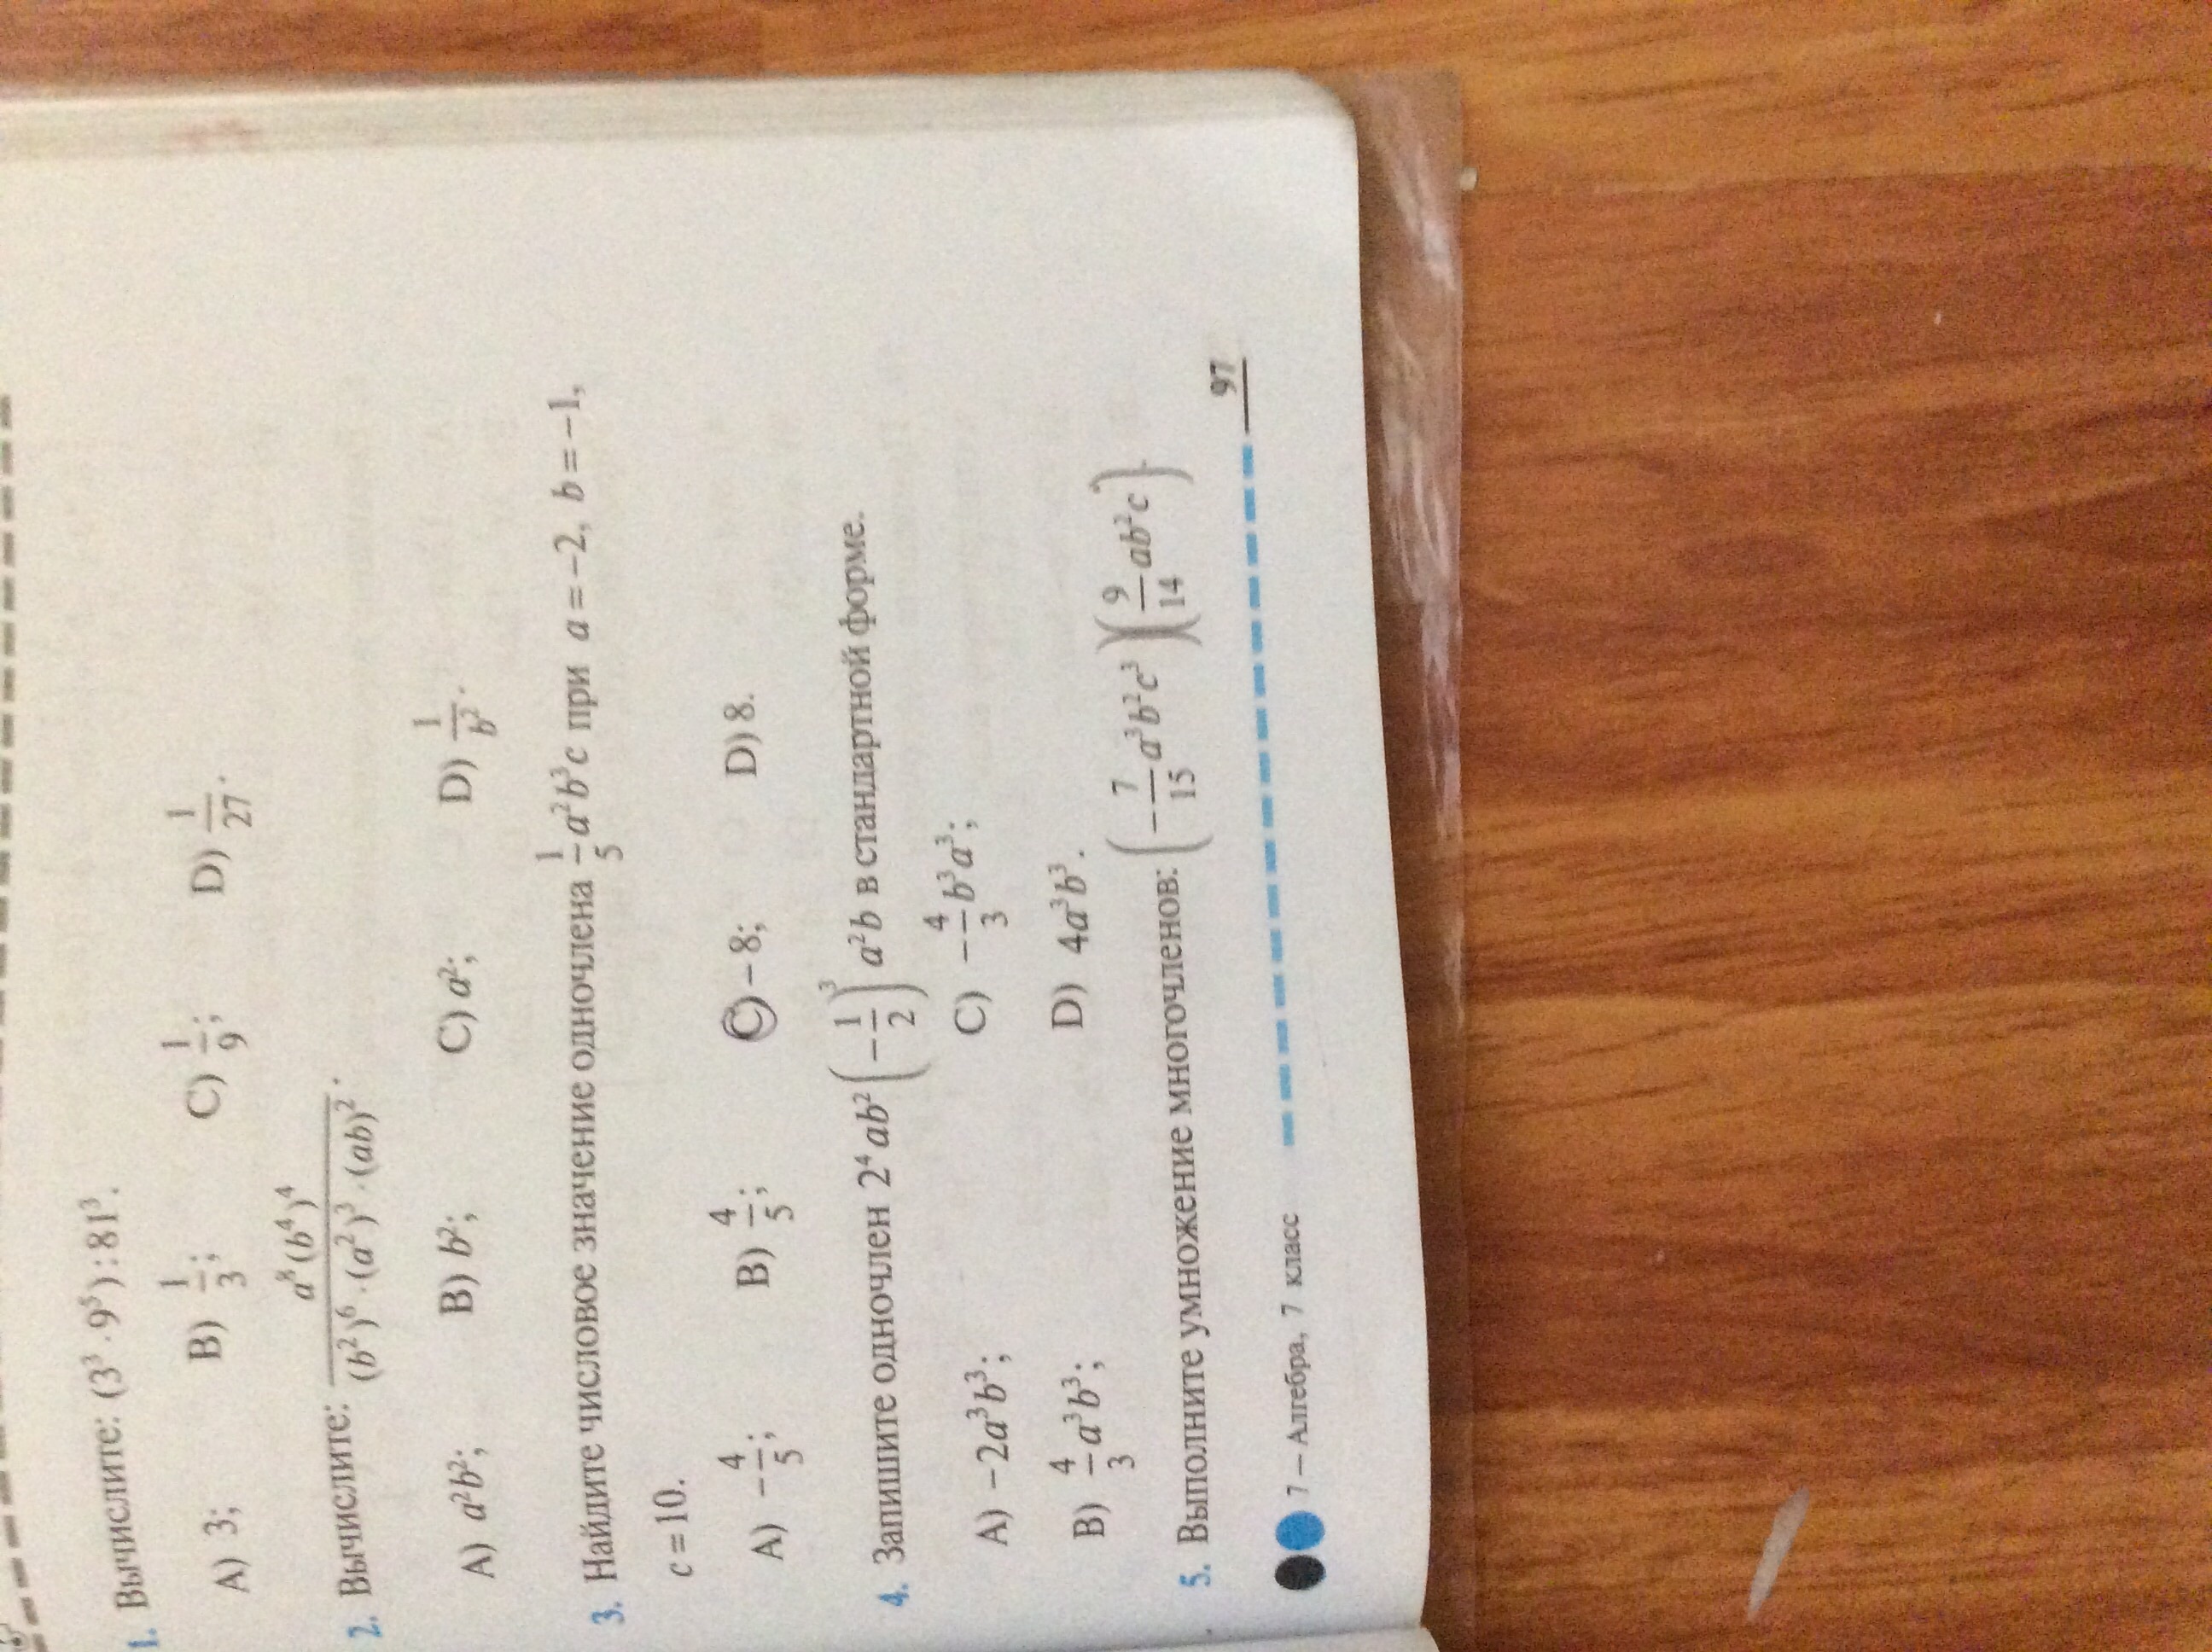 1. Вычислите: (3³ · 9⁵) : 81³.
A) 3; B) 1/3; C) 1/9; D) 1/27.
2. Вычислите: a⁸(b⁴)⁴ / (b²)⁶ · (a²)³ · (ab)².
A) a²b²; B) b²; C) a²; D) 1/b².
3. Найдите числовое значение одночлена 1/5 a²b³c при a = −2, b = −1,
c = 10.
A) −4/5; B) 4/5; C) −8; D) 8.
4. Запишите одночлен 2⁴ab²(−1/2)³a²b в стандартной форме.
A) −2a³b³; C) −4/3 b³a³;
B) 4/3 a³b³; D) 4a³b³.
5. Выполните умножение многочленов: (−7/15 a³b²c³)(9/14 ab²c).
7 – Алгебра, 7 класс
97